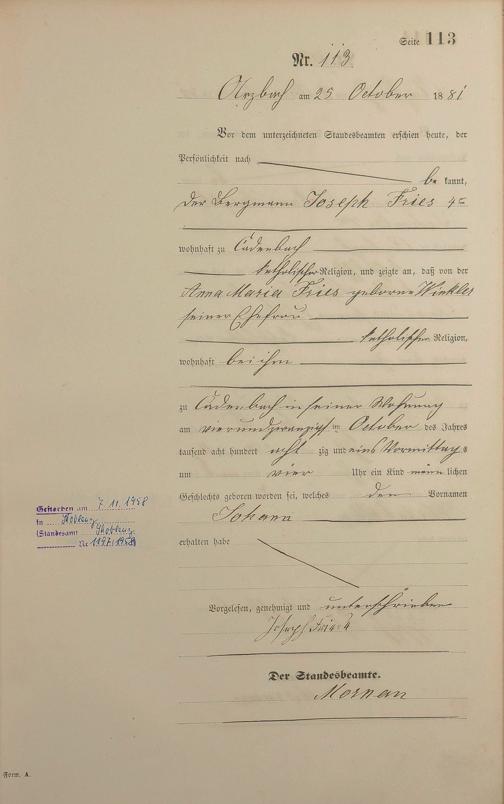 Seite 113
Nr. 113
Arzbach am 25 October 1881
Vor dem unterzeichneten Standesbeamten erschien heute, der
Persönlichkeit nach
be kannt,
der Bergmann Joseph Fries 4te
wohnhaft zu Cadenbach
katholischer Religion, und zeigte an, daß von der
Anna Maria Fries geborne Winkler
seiner Ehefrau
katholischer Religion,
wohnhaft bei ihm
zu Cadenbach in seiner Wohnung
am vierundzwanzigsten October des Jahres
tausend acht hundert acht zig und eins Vormittags
um vier Uhr ein Kind männlichen
Geschlechts geboren worden sei, welches den Vornamen
Johann
erhalten habe
Vorgelesen, genehmigt und unterschrieben
Joseph Fries 4
Der Standesbeamte.
Gestorben am 7.11.1958
in Koblenz
(Standesamt Koblenz
Nr 1197/1958)
Form. A.